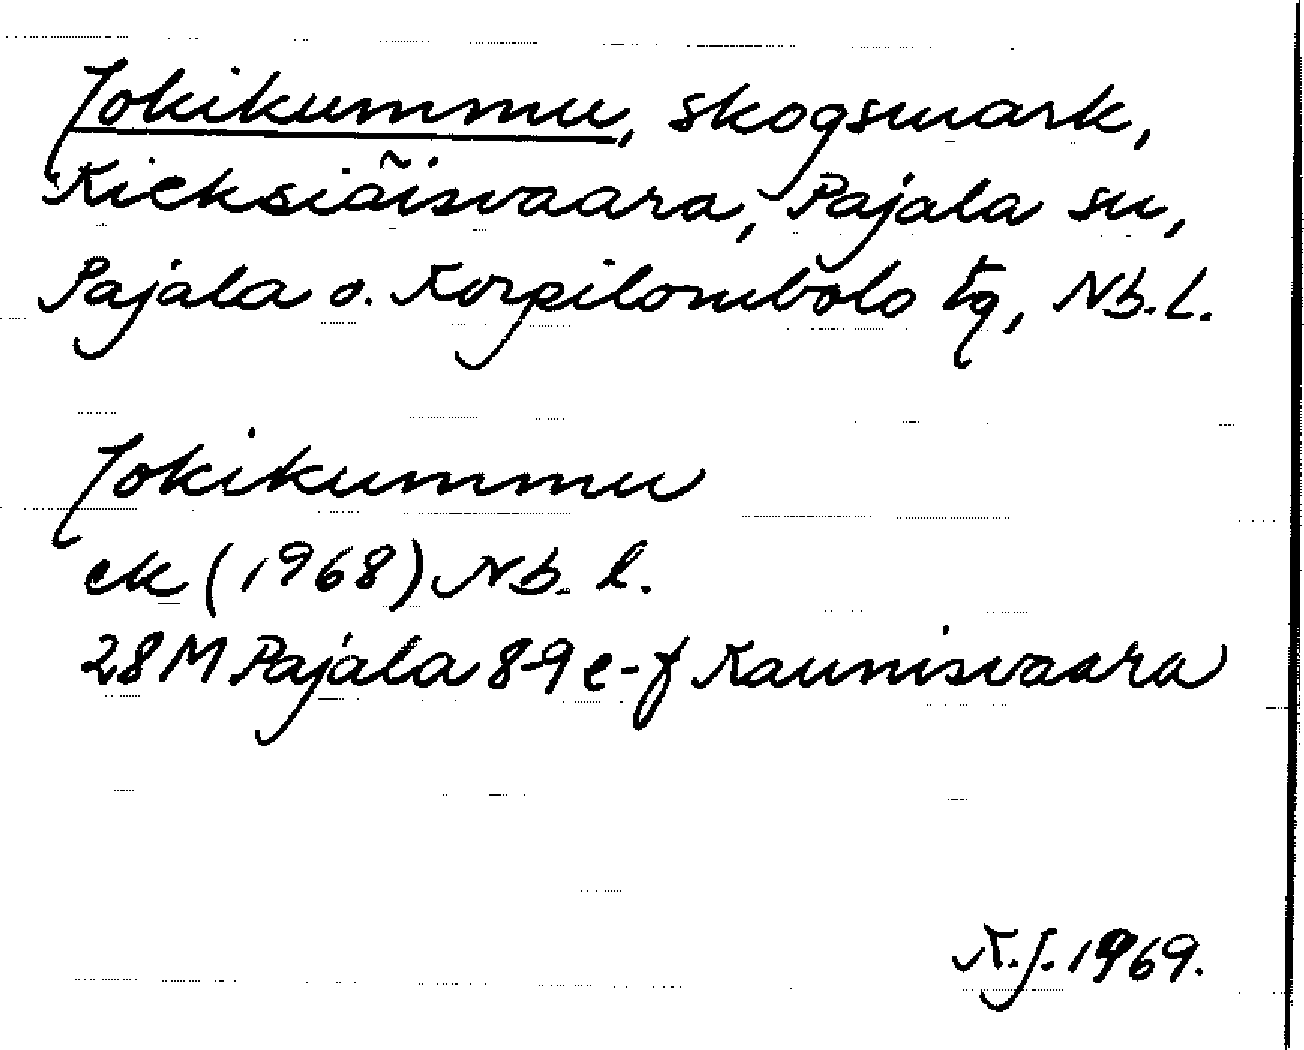 Jokikummu, skogsmark,
Kieksiäisvaara, Pajala sn,
Pajala o. Korpilombolo tg, Nb. L.
Jokikummu
ek (1968) Nb. l.
28M Pajala 8-9 e-f Kaunisvaara
K.J. 1969.